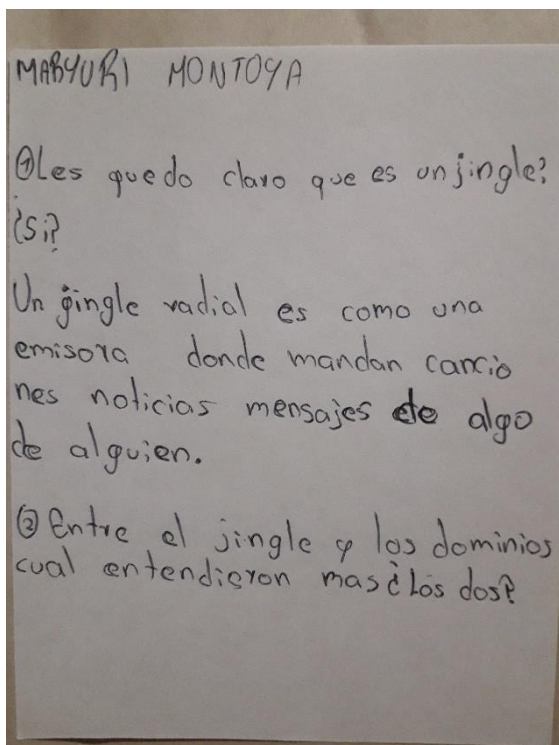 MARYURI MONTOYA
① Les quedo claro que es un jingle?
¿Si?
Un gingle radial es como una
emisora donde mandan cancio
nes noticias mensajes de algo
de alguien.
② Entre el jingle y los dominios
cual entendieron mas ¿Los dos?